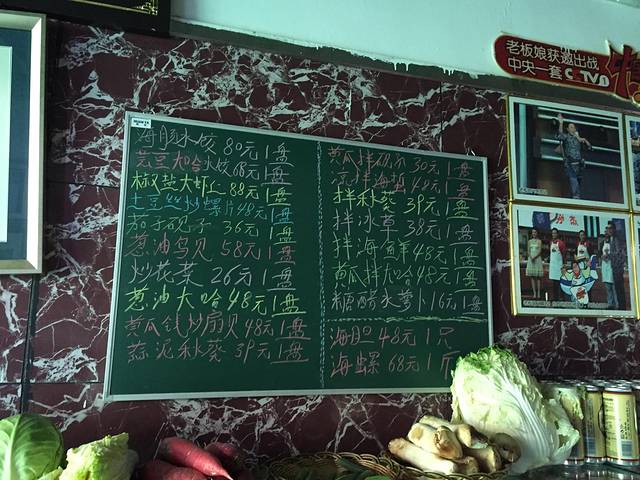 海肠水饺 80元1盘
芸豆大哈水饺68元1盘
椒盐大虾 88元1盘
土豆丝炒螺片48元1盘
茄子砚子 36元1盘
葱油鸟贝 58元1盘
炒花菜 26元1盘
葱油大哈48元1盘
黄瓜钱炒扇贝48元1盘
蒜泥秋葵 39元1盘
黄瓜拌 30元1盘
凉拌海蜇48元1盘
拌秋葵 39元1盘
拌冰草 38元1盘
拌海鲜48元1盘
黄瓜拌大哈48元1盘
糖醋水萝卜16元1盘
海胆 48元1只
海螺 68元1斤
老板娘获邀出战
中央一套CCTV